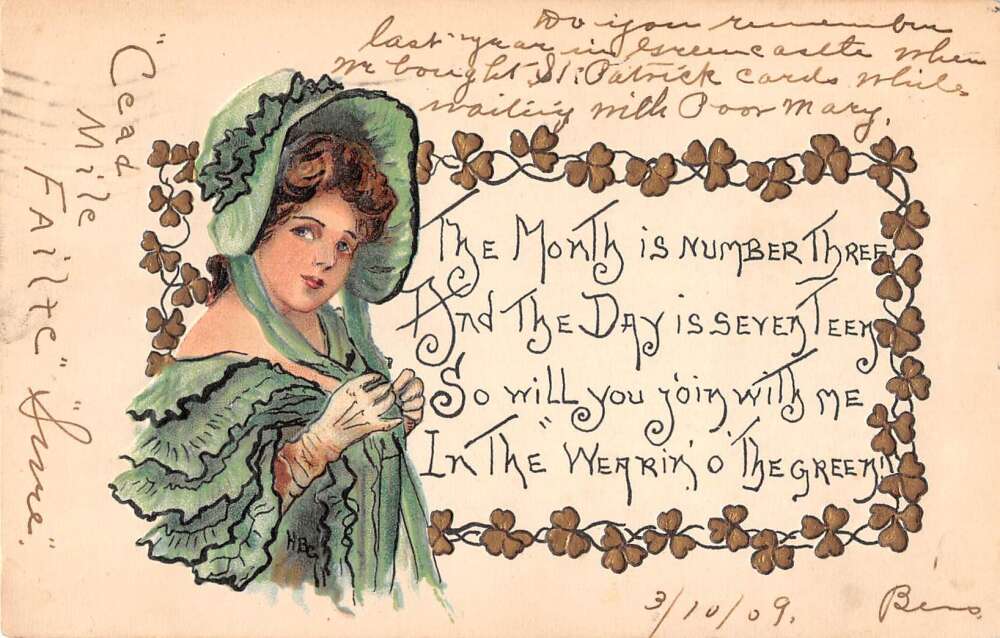 Do you remember
last year in Greencastle when
we bought St. Patrick cards while
waiting with Poor Mary.
"Cead
Mile
FAilte" "Surre".
The Month is number Three
And The Day is seven Teen
So will you join with me
In The "Wearin' o The green"
HBG
3/10/09.
Bens